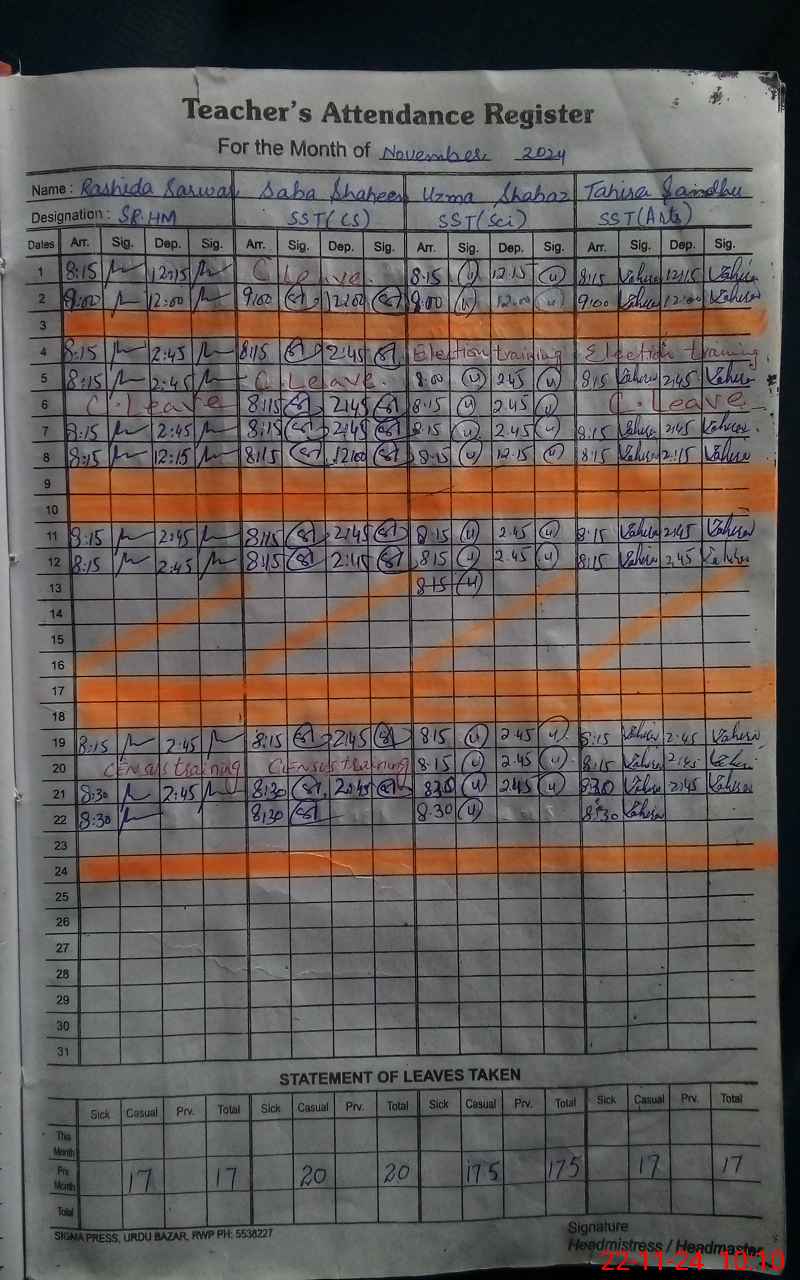 Teacher's Attendance Register
For the Month of November 2024
Name : Rashida Sarwar Saba Shaheen Uzma Shahaz Tahira Sandhu
Designation : SR.HM SST(CS) SST(Sci) SST(Arts)
Dates Arr. Sig. Dep. Sig. Arr. Sig. Dep. Sig. Arr. Sig. Dep. Sig. Arr. Sig. Dep. Sig.
1 8:15 12:15 C. Leave. 8.15 12.15 8:15 Tahira 12:15 Tahira
2 9:00 12:00 9:00 12:00 12:00 9:00 Tahira 12:00 Tahira
3
4 8:15 2:45 8:15 2:45 Election training Election training
5 8:15 2:45 C. Leave. 8.00 2.45 8:15 Tahira 2:45 Tahira
6 C. Leave 8:15 2:45 8.15 2.45 C. Leave
7 8:15 2:45 8:15 2:45 8.15 2.45 8:15 Tahira 2:45 Tahira
8 8:15 12:15 8:15 12:00 8.15 12.15 8:15 Tahira Tahira
9
10
11 8:15 2:45 8:15 2:45 8.15 2.45 8:15 Tahira 2:45 Tahira
12 8:15 2:45 8:15 8.15 2.45 8:15 Tahira 2:45 Tahira
13 8.15
14
15
16
17
18
19 8:15 2:45 8:15 2:45 8.15 2.45 8:15 Tahira 2:45 Tahira
20 Census training Census training 8.15 2.45 8:15 Tahira 2:45
21 8:30 2:45 8:30 2:45 8.30 2.45 8:30 Tahira 2:45 Tahira
22 8:30 8:30 8.30 8:30 Tahira
23
24
25
26
27
28
29
30
31
STATEMENT OF LEAVES TAKEN
Sick Casual Prv. Total Sick Casual Prv. Total Sick Casual Prv. Total Sick Casual Prv. Total
This Month
Prv. Month 17 17 20 20 175 175 17 17
Total
SIGMA PRESS, URDU BAZAR, RWP PH: 5538227
Signature
Headmistress / Headmaster
22-11-24 10:10